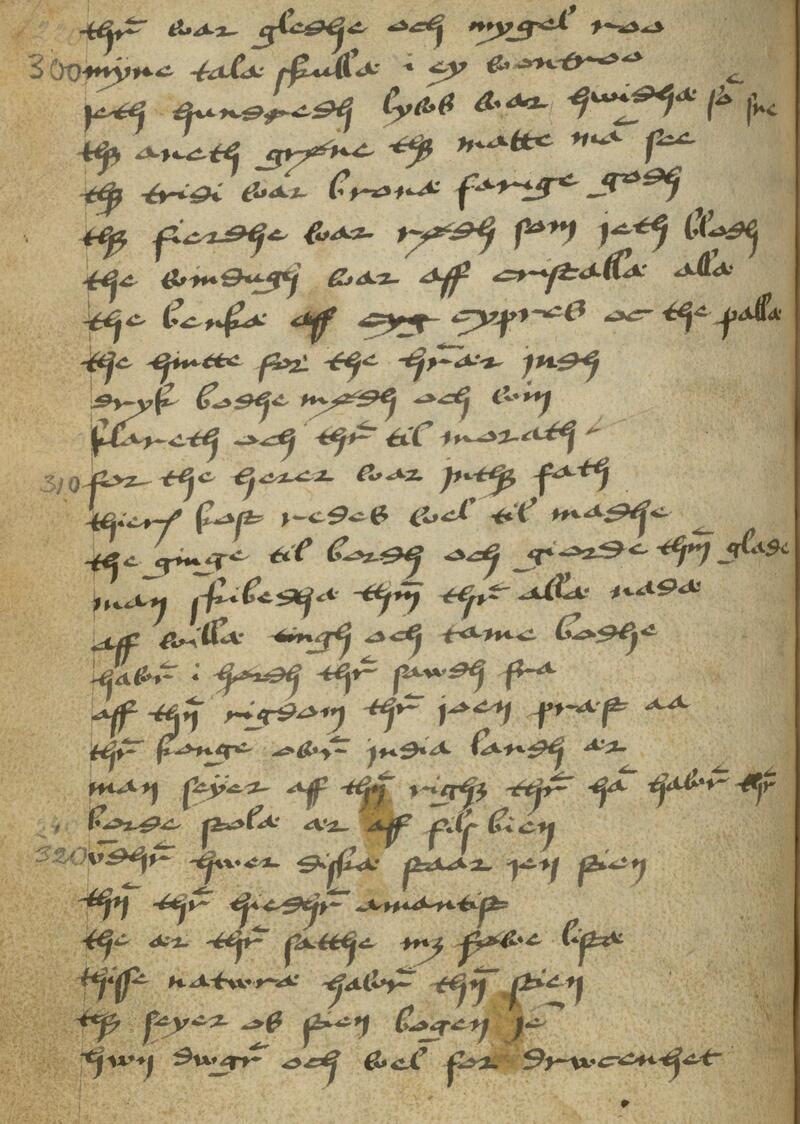 thr̄ war gledhe och mygel roo
300 myne talæ skullæ i ey wontroo
jeth hundredh lyws war hwidhæ so̅ sne
thʒ aneth grøne thʒ matte ma̅ see
thʒ tridi war bronæ farige godh
thʒ fierdhe war rødh som jeth blodh
the windugh war aff cristallæ allæ
the benkæ aff cypres oc the pallæ
the hintte for the hr̄ær jndh
dryk bodhe mødh och win
klareth och thr̄ til morath
310 for the herer war jnthʒ fath
thierſ kost redes wel til madhe
the ginge til bordh och giorde thm̅ glade
man skibedhæ thm̅ thr̄ allæ nadæ
aff willæ tingh och tame bodhe
hawr̄ i hørdh thr̄ sawdh fra
aff thn̅ rigdom thr̄ joen præst aa
thr̄ konge owr̄ india landh ær
man seÿer aff thn̅ righʒ thr̄ ha̅ hawr̄ thr̄
borde stolæ ær aff filſ bien
320 v̅dhr̄ hwer diskæ staar jen stien
thn̅ thr̄ hiedhr̄ amantist
the ær thr̄ satthe mʒ føwe listæ
thisse natwræ hawr̄ thn̅ stien
thʒ seyer os stien bogen je̅
hwn dwgr̄ och wel for drwcenhet